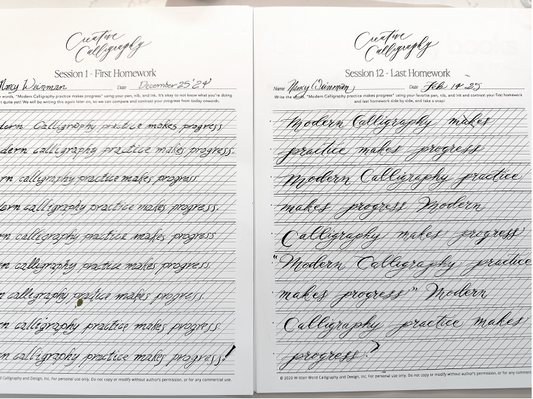 Creative
Calligraphy
Session 1 - First Homework
Nancy Date December 25'24'
words, "Modern Calligraphy practice makes progress" using your favorite pen, nib, and ink. It's okay to not know what you're doing
quite yet! We will be writing this again later on, so we can compare and contrast your progress from today onwards.
dern Calligraphy practice makes progress
dern calligraphy practice makes progress.
rn calligraphy practice makes progress
dern calligraphy practice makes progress.
rn calligraphy practice makes progress.
n calligraphy practice makes progress.
n calligraphy practice makes progress.
n calligraphy practice makes progress.
n calligraphy practice makes progress!
Calligraphy and Design, Inc. For personal use only. Do not copy or modify without author's permission, or for any commercial use.
Creative
Calligraphy
Session 12 - Last Homework
Name Nancy Date Feb 14 - 25
Write the words, "Modern Calligraphy makes progress" using your favorite pen, nib, and ink and contrast your first homework
and last homework side by side, and take a copy!
Modern Calligraphy makes
practice makes progress
Modern Calligraphy practice
makes progress Modern
Calligraphy makes progress
"Modern Calligraphy practice
makes progress" Modern
Calligraphy practice makes
progress?
© 2020 Written Word Calligraphy and Design, Inc. For personal use only. Do not copy or modify without author's permission, or for any commercial use.